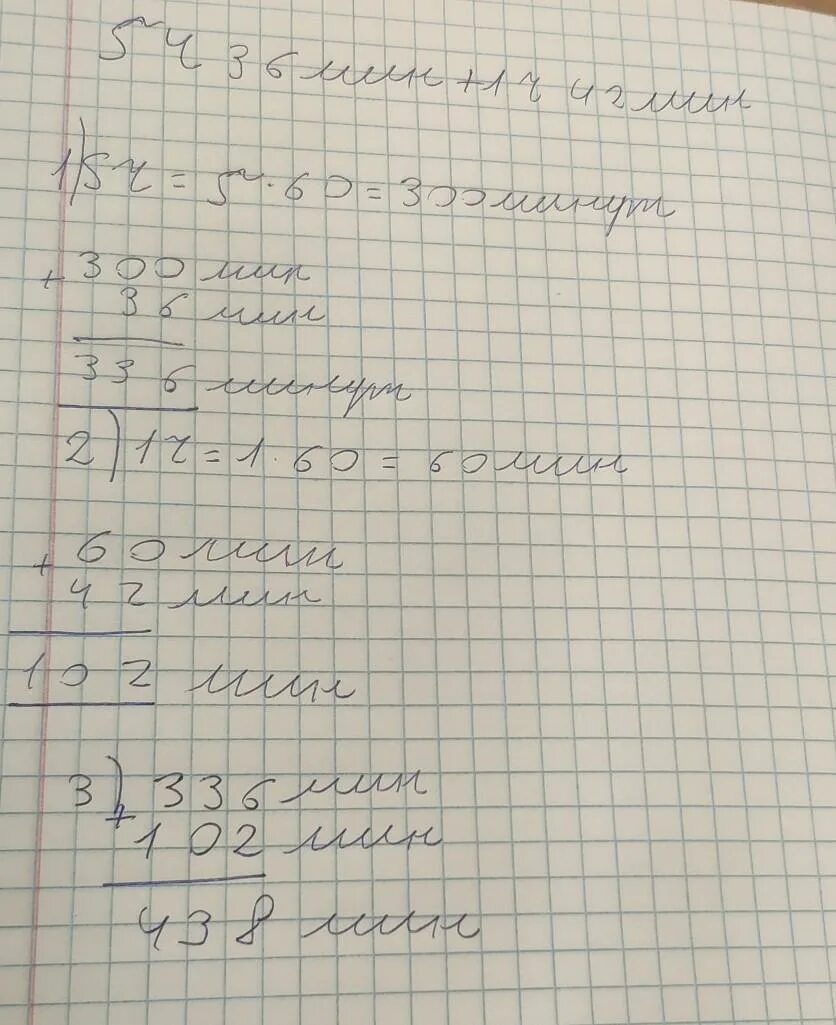 5 ч 36 мин + 1 ч 42 мин
1) 5 ч = 5 · 60 = 300 минут
+ 300 мин
36 мин
336 минут
2) 1 ч = 1 · 60 = 60 мин
+ 60 мин
42 мин
102 мин
3) + 336 мин
102 мин
438 мин